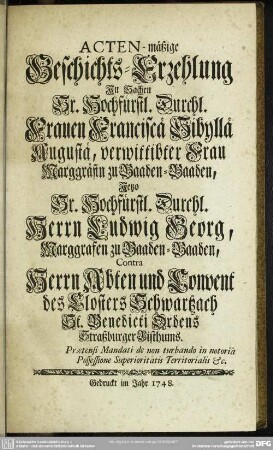 ACTEN-mäßige
Geschichts-Erzehlung
In Sachen
Ihr. Hochfürstl. Durchl.
Frauen Franciscä Sibyllä
Augustä, verwittibter Frau
Marggräfin zu Baaden-Baaden,
Jetzo
Sr. Hochfürstl. Durchl.
Herrn Ludwig Georg,
Marggrafen zu Baaden-Baaden,
Contra
Herrn Abten und Convent
des Closters Schwartzach
St. Benedicti Ordens
Straßburger Bisthums.
Prætensi Mandati de non turbando in notoria
Possessione Superioritatis Territorialis &c.
Gedruckt im Jahr 1748.